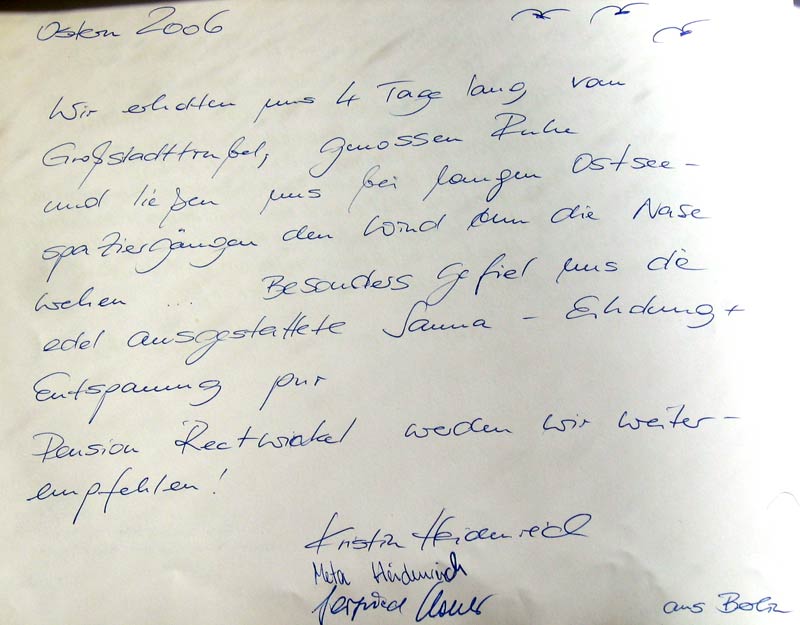 Ostern 2006
Wir erholten uns 4 Tage lang vom
Großstadttrubel, genossen Ruhe
und ließen uns bei langen Ostsee-
spaziergängen den Wind um die Nase
wehen ... Besonders gefiel uns die
edel ausgestattete Sauna - Erholung +
Entspannung pur
Pension Reetwinkel werden wir weiter-
empfehlen!
Kristin Heidenreich
Meta Heidenreich
aus Berlin